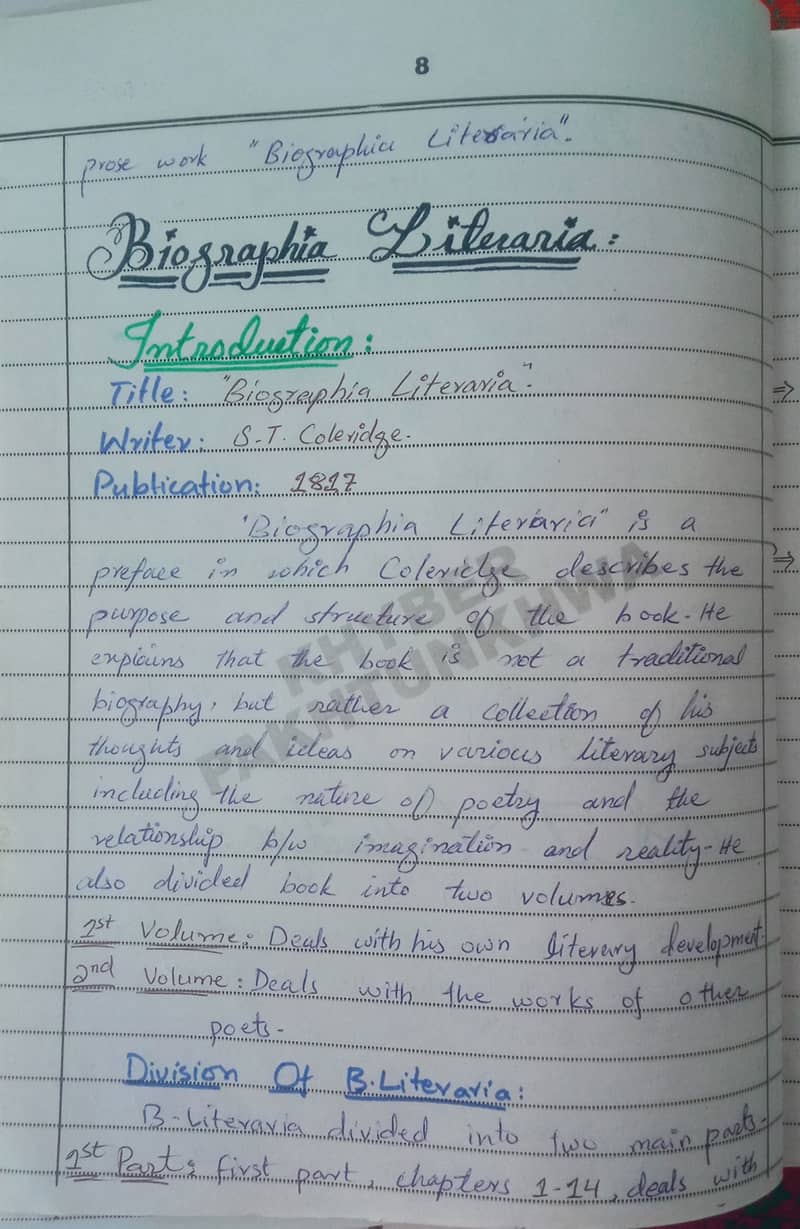 8
prose work "Biographia Literaria".
Biographia Literaria:
Introduction:
Title: "Biographia Literaria".
Writer: S.T. Coleridge.
Publication: 1817
"Biographia Literaria" is a
preface in which Coleridge describes the
purpose and structure of the book. He
explains that the book is not a traditional
biography, but rather a collection of his
thoughts and ideas on various literary subjects
including the nature of poetry and the
relationship b/w imagination and reality. He
also divided book into two volumes.
1st Volume: Deals with his own literary development.
2nd Volume: Deals with the works of other
poets.
Division Of B.Literaria:
B-Literaria divided into two main parts.
1st Part: first part, chapters 1-14, deals with
KHYBER
PAKHTUNKHWA